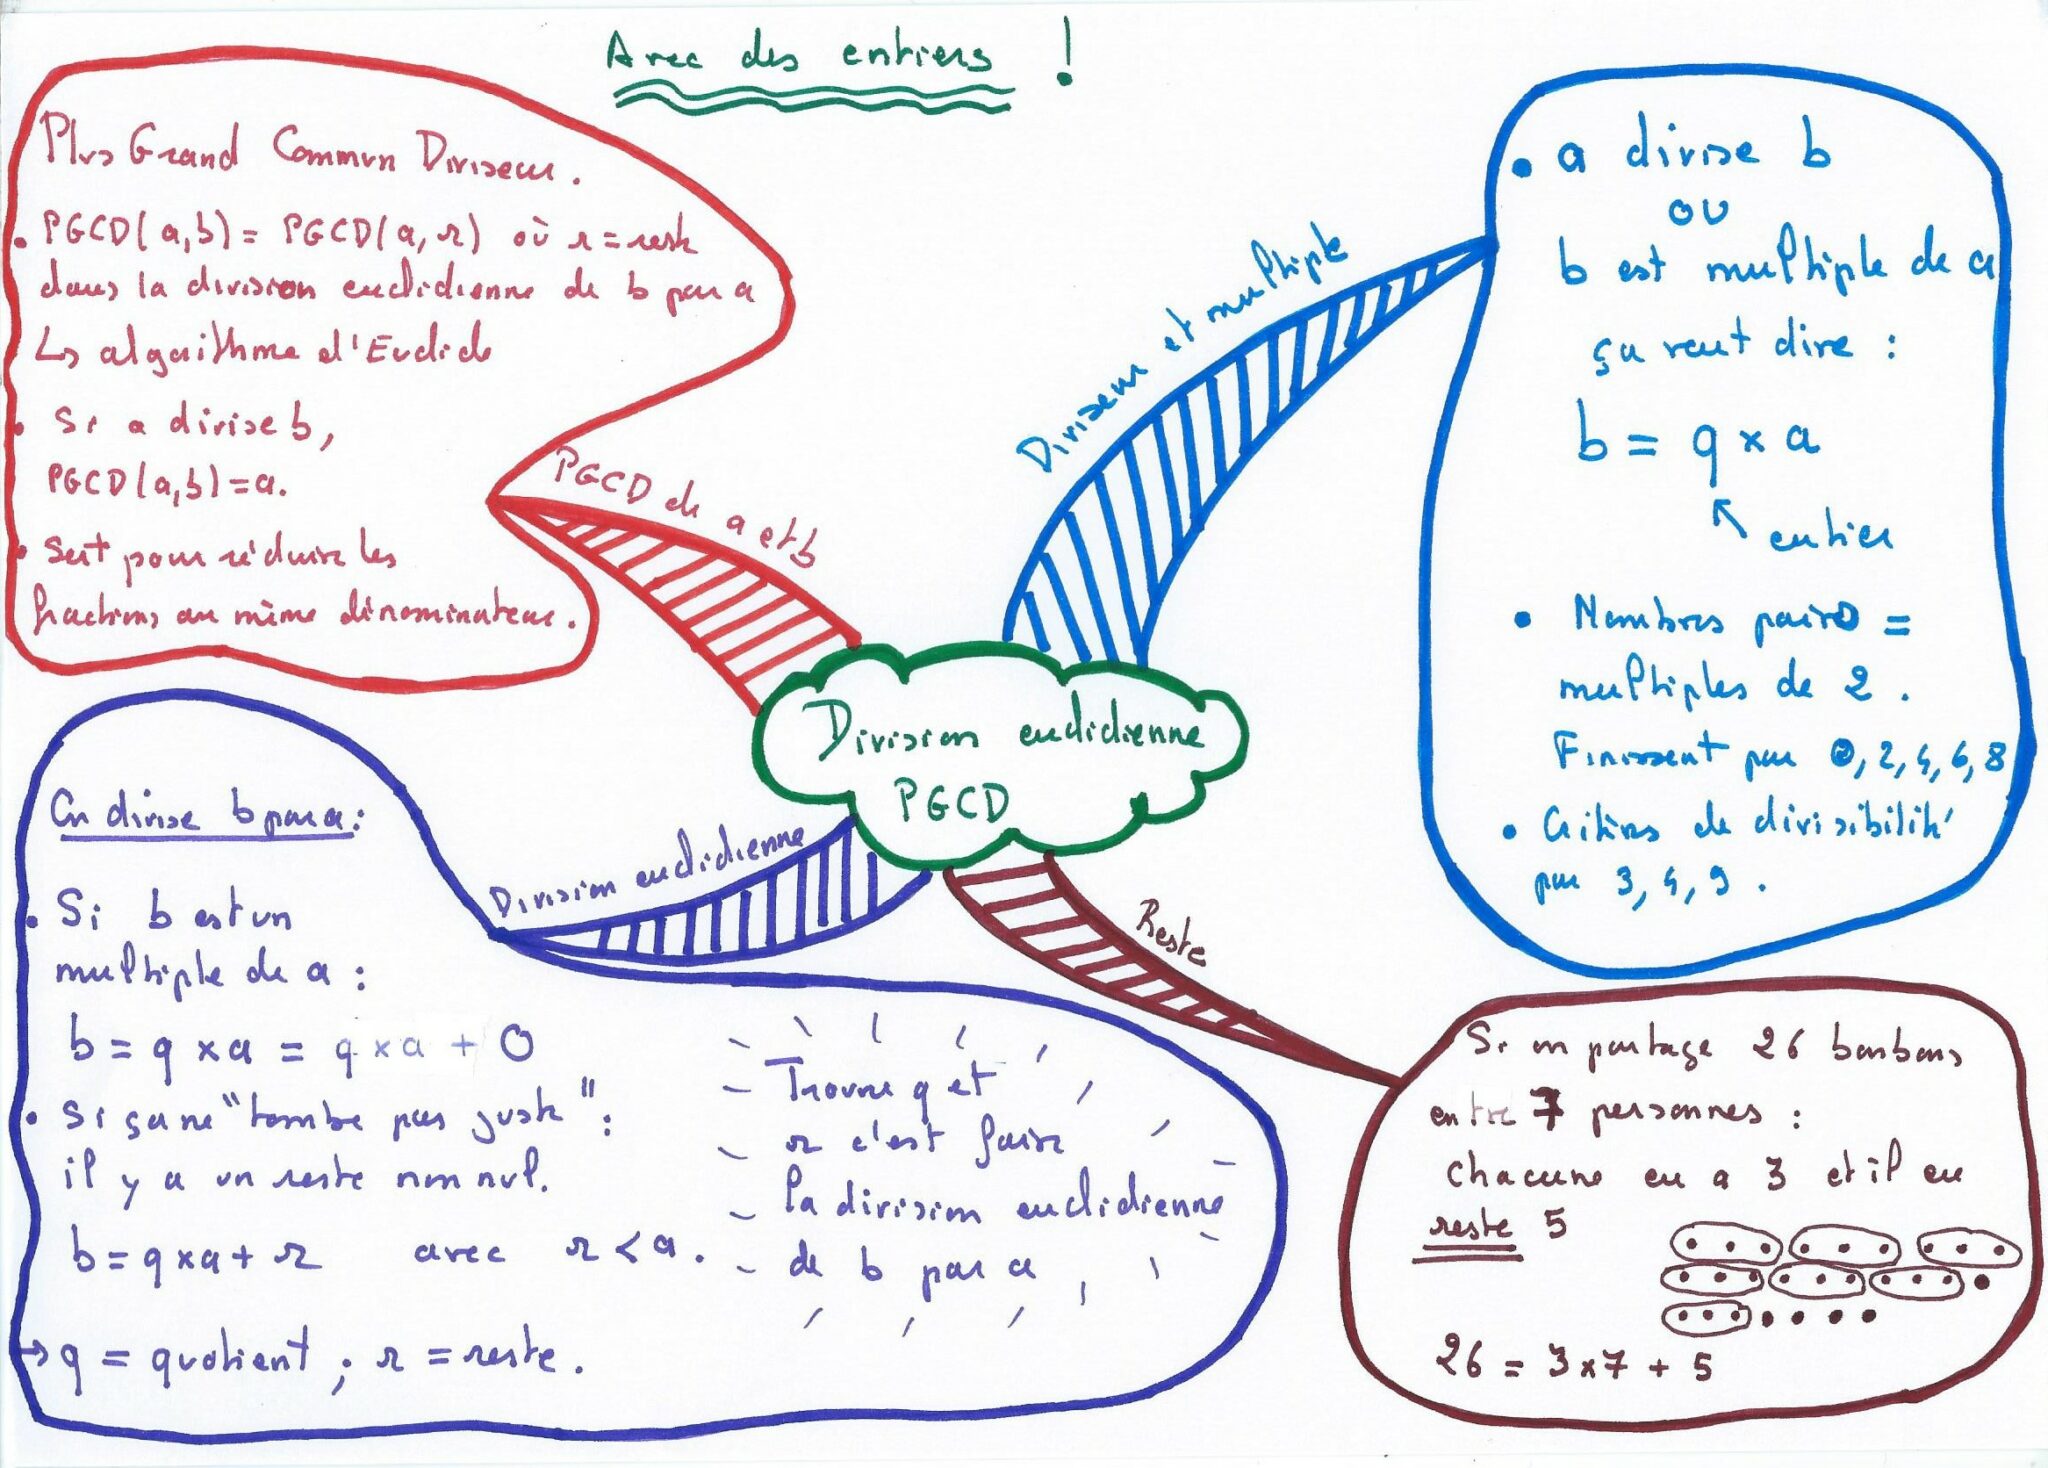 Avec des entiers !
Plus Grand Commun Diviseur.
• PGCD(a,b) = PGCD(a,r) où r = reste
dans la division euclidienne de b par a
↳ algorithme d'Euclide
• Si a divise b,
PGCD(a,b) = a.
• Sert pour réduire les
fractions au même dénominateur.
PGCD de a et b
Diviseur et multiple
• a divise b
ou
b est multiple de a
ça veut dire :
b = q × a
↖ entier
• Nombres pairs =
multiples de 2.
Finissent par 0, 2, 4, 6, 8
• Critères de divisibilité
par 3, 4, 9.
Division euclidienne
PGCD
Division euclidienne
On divise b par a :
• Si b est un
multiple de a :
b = q × a = q × a + 0
• Si ça ne "tombe pas juste" :
il y a un reste non nul.
b = q × a + r avec r < a.
→ q = quotient ; r = reste.
Trouver q et
r c'est faire
la division euclidienne
de b par a
Reste
Si on partage 26 bonbons
entre 7 personnes :
chacune en a 3 et il en
reste 5
26 = 3×7 + 5